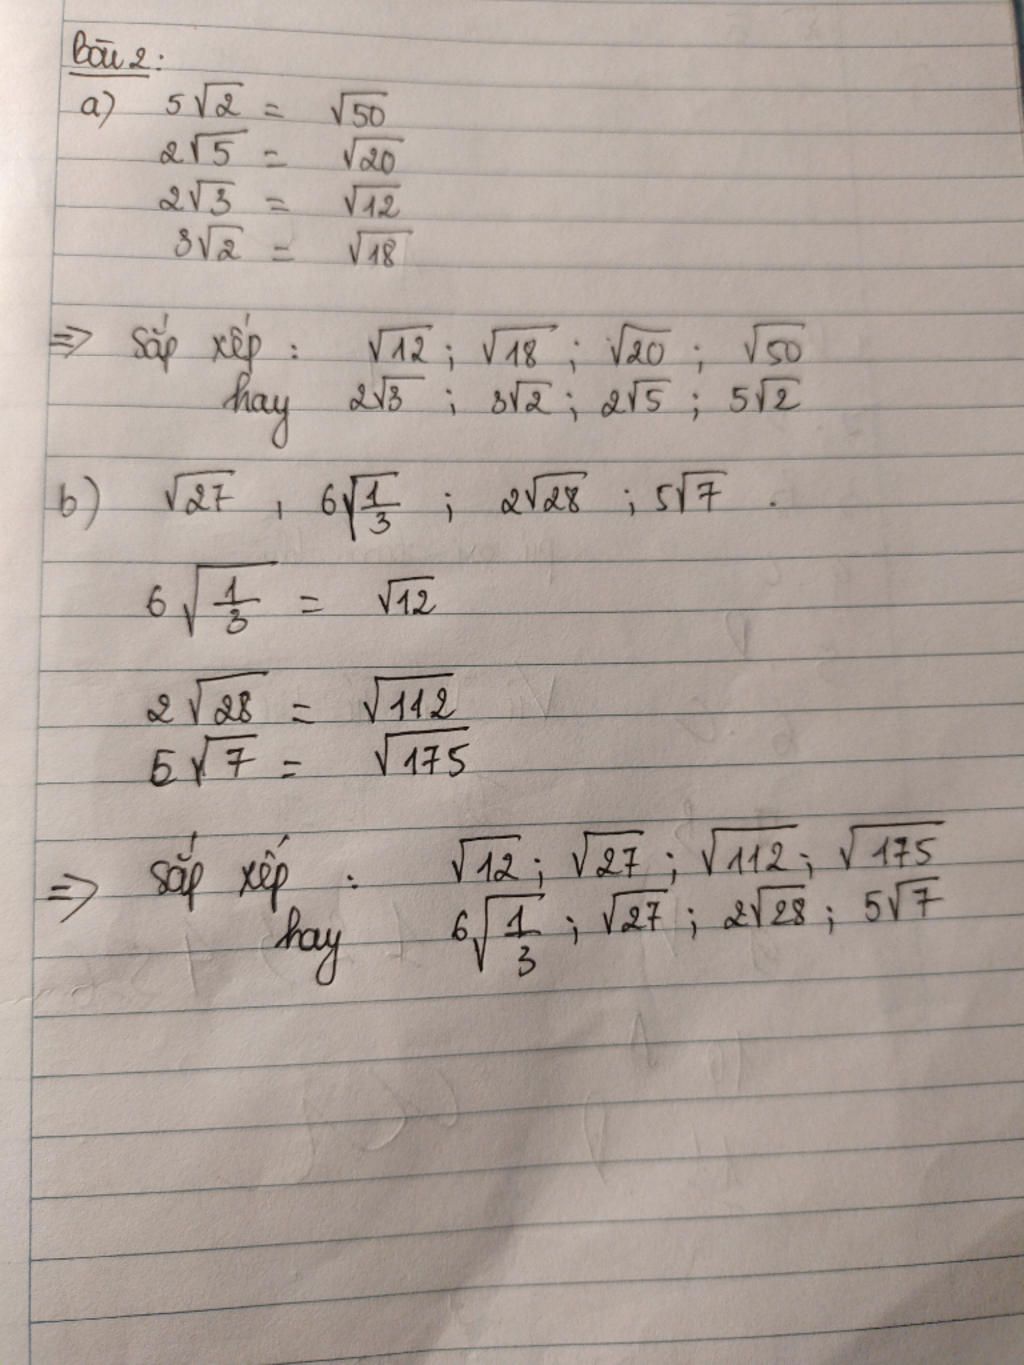 Bài 2:
a) 5√2 = √50
2√5 = √20
2√3 = √12
3√2 = √18
=> Sắp xếp : √12 ; √18 ; √20 ; √50
hay 2√3 ; 3√2 ; 2√5 ; 5√2
b) √27 , 6√(1/3) ; 2√28 ; 5√7 .
6√(1/3) = √12
2√28 = √112
5√7 = √175
=> Sắp xếp : √12 ; √27 ; √112 ; √175
hay 6√(1/3) ; √27 ; 2√28 ; 5√7